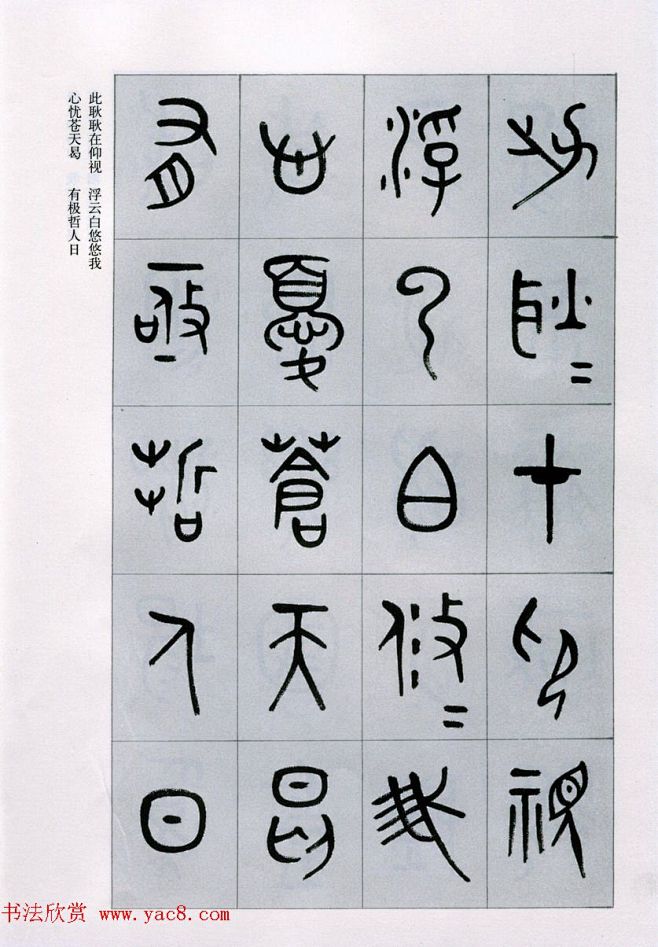 此耿〓才卬視
浮云白攸〓我
心憂蒼天曷
有亟哲人日
此耿耿在仰视　浮云白悠悠我
心忧苍天曷　有极哲人日
书法欣赏 www.yac8.com